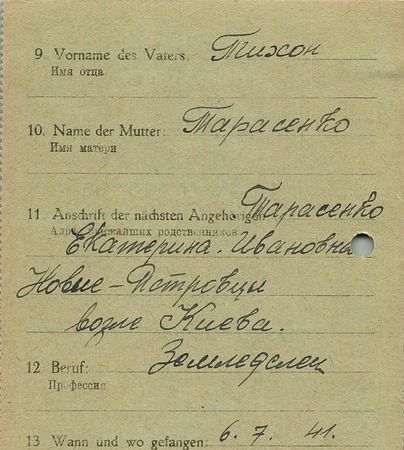 9. Vorname des Vaters: Тихон
Имя отца
10. Name der Mutter: Тарасенко
Имя матери
11 Anschrift der nächsten Angehörigen: Тарасенко
Адрес ближайших родственников
Екатерина. Ивановна
Новые-Петровцы
возле Киева.
12 Beruf: Земледелец
Профессия
13 Wann und wo gefangen: 6. 7. 41.